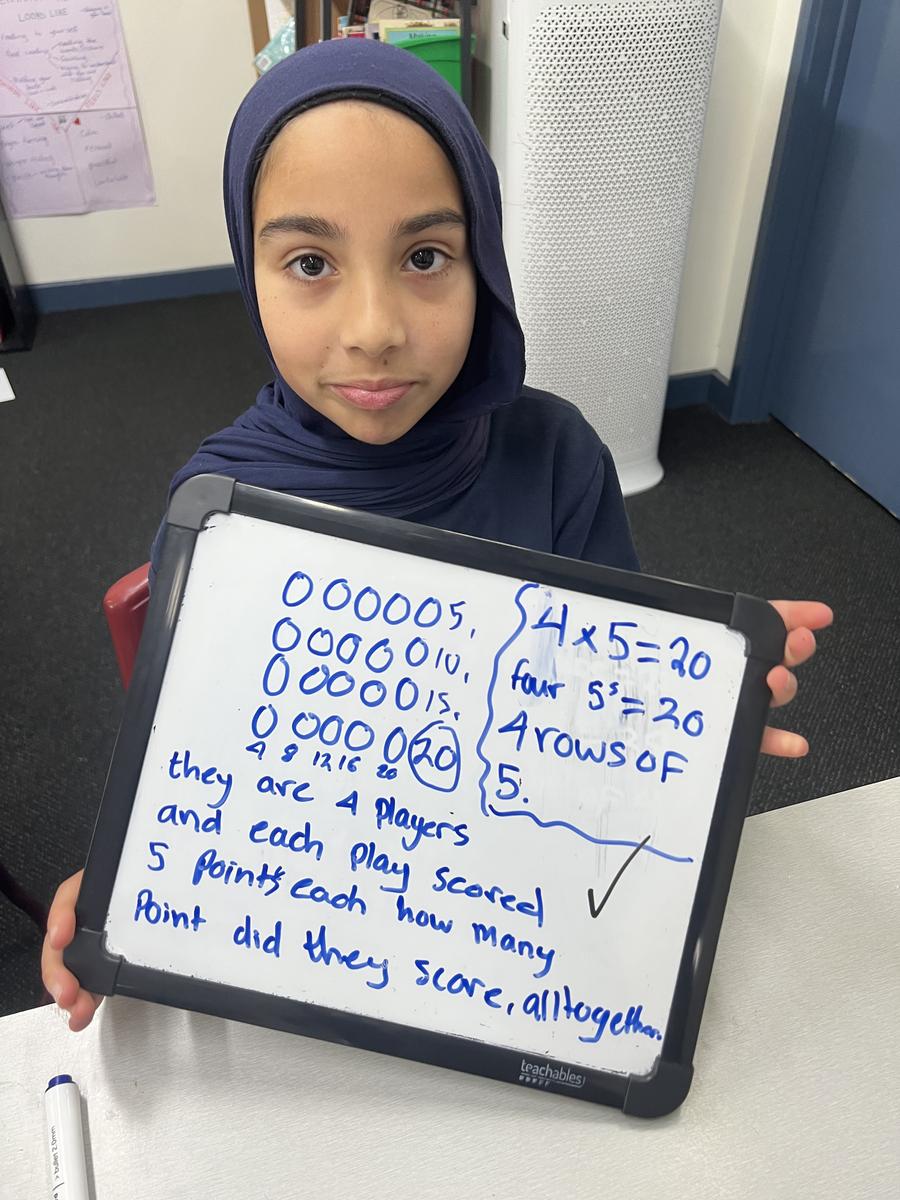 LOOKS LIKE
Making
0 00000 5,
0 0000 10,
0 0000 15.
0 000 0 20
4 8 12 16 20
4 x 5 = 20
four 5s = 20
4 rows of
5.
they are 4 players
and each play scored
5 points each how many
Point did they score, alltogether.
teachables
bullet 2.0mm